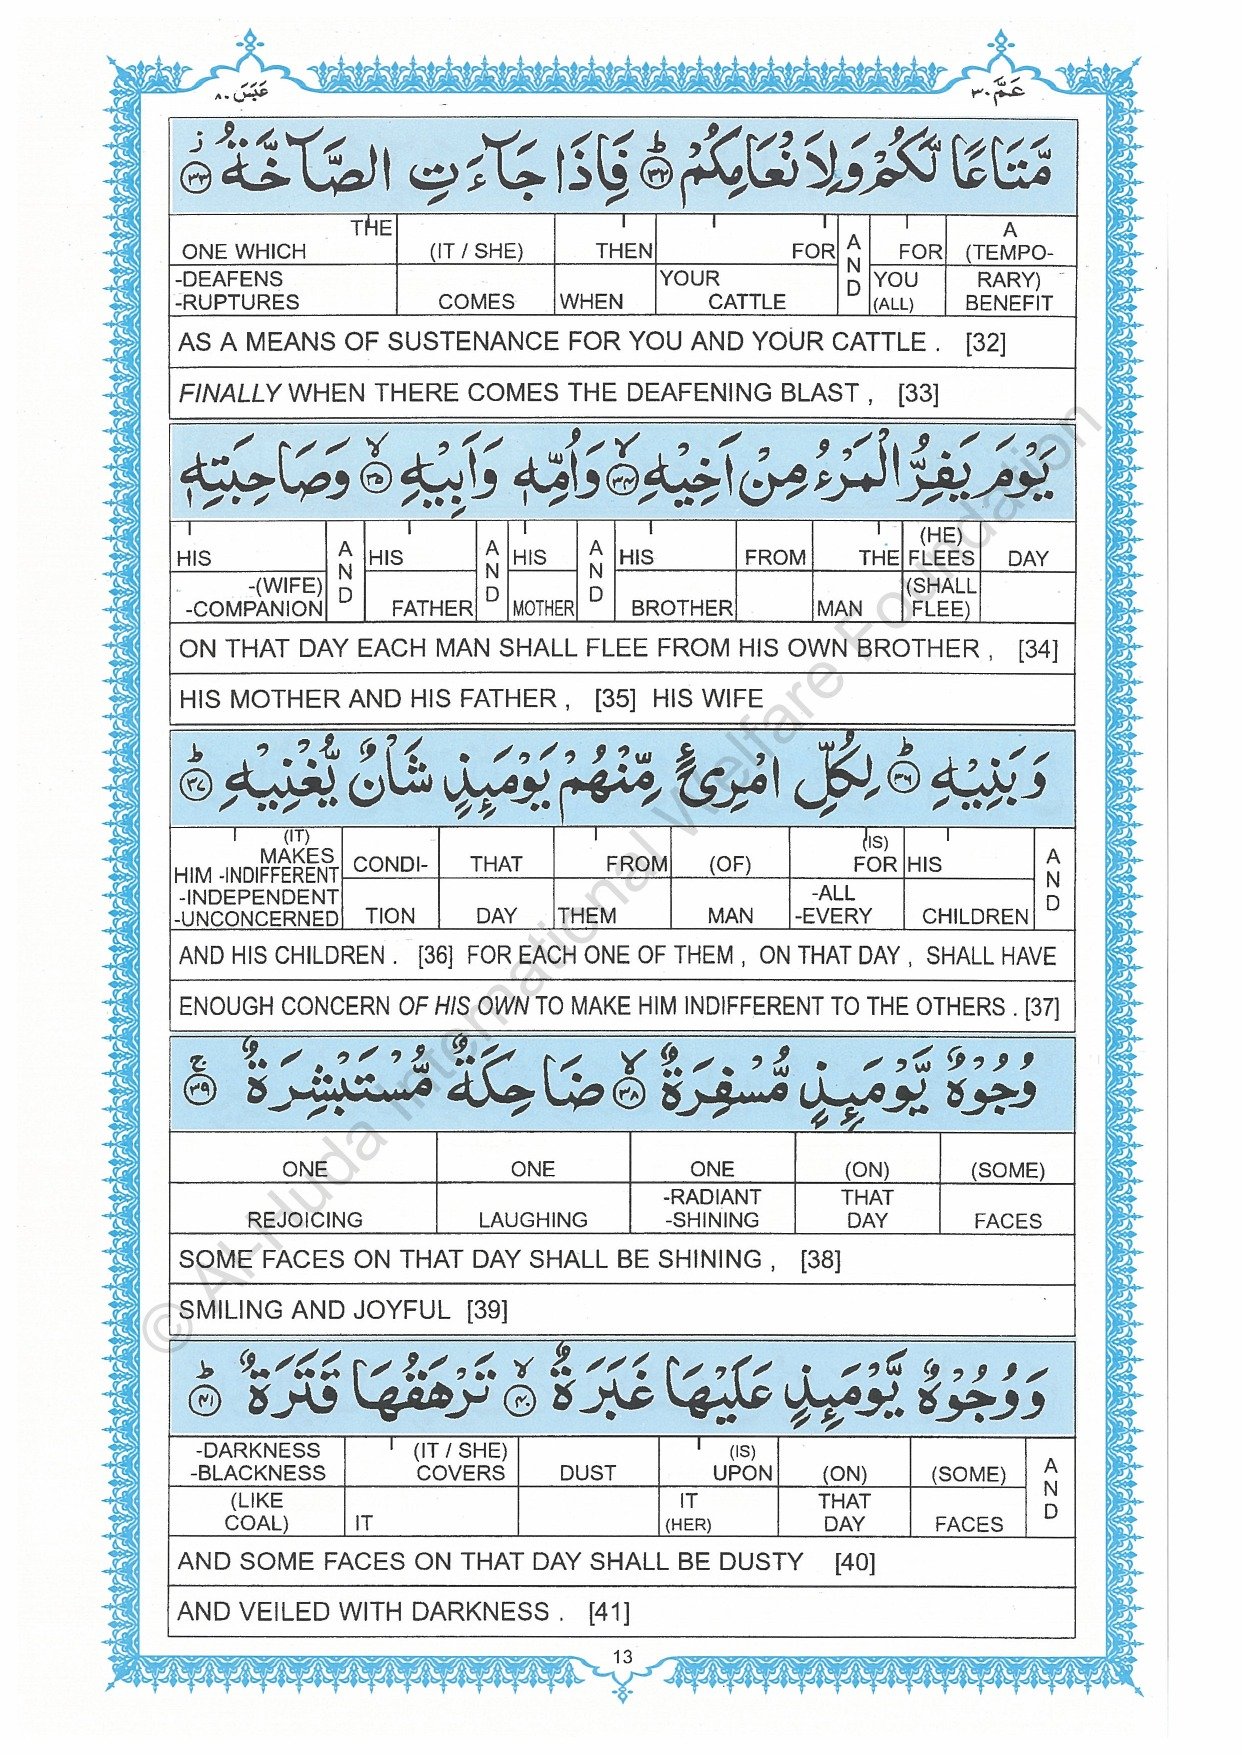 عَبَسَ ٨٠
عَمَّ ٣٠
مَّتَاعًا لَّكُمْ وَلِاَنْعَامِكُمْ ؕ ﴿٣٢﴾ فَاِذَا جَآءَتِ الصَّآخَّةُ ؗ ﴿٣٣﴾
THE A
ONE WHICH (IT / SHE) THEN FOR AND FOR (TEMPO-
-DEAFENS YOUR YOU RARY)
-RUPTURES COMES WHEN CATTLE (ALL) BENEFIT
AS A MEANS OF SUSTENANCE FOR YOU AND YOUR CATTLE . [32]
FINALLY WHEN THERE COMES THE DEAFENING BLAST , [33]
يَوْمَ يَفِرُّ الْمَرْءُ مِنْ اَخِيْهِ ۙ ﴿٣٤﴾ وَاُمِّهٖ وَاَبِيْهِ ۙ ﴿٣٥﴾ وَصَاحِبَتِهٖ
(HE)
HIS AND HIS AND HIS AND HIS FROM THE FLEES DAY
-(WIFE) (SHALL
-COMPANION FATHER MOTHER BROTHER MAN FLEE)
ON THAT DAY EACH MAN SHALL FLEE FROM HIS OWN BROTHER , [34]
HIS MOTHER AND HIS FATHER , [35] HIS WIFE
وَبَنِيْهِ ؕ ﴿٣٦﴾ لِكُلِّ امْرِئٍ مِّنْهُمْ يَوْمَئِذٍ شَاْنٌ يُّغْنِيْهِ ؕ ﴿٣٧﴾
(IT) (IS)
MAKES CONDI- THAT FROM (OF) FOR HIS AND
HIM -INDIFFERENT
-INDEPENDENT -ALL
-UNCONCERNED TION DAY THEM MAN -EVERY CHILDREN
AND HIS CHILDREN . [36] FOR EACH ONE OF THEM , ON THAT DAY , SHALL HAVE
ENOUGH CONCERN OF HIS OWN TO MAKE HIM INDIFFERENT TO THE OTHERS . [37]
وُجُوْهٌ يَّوْمَئِذٍ مُّسْفِرَةٌ ۙ ﴿٣٨﴾ ضَاحِكَةٌ مُّسْتَبْشِرَةٌ ۚ ﴿٣٩﴾
ONE ONE ONE (ON) (SOME)
-RADIANT THAT
REJOICING LAUGHING -SHINING DAY FACES
SOME FACES ON THAT DAY SHALL BE SHINING , [38]
SMILING AND JOYFUL [39]
وَوُجُوْهٌ يَّوْمَئِذٍ عَلَيْهَا غَبَرَةٌ ۙ ﴿٤٠﴾ تَرْهَقُهَا قَتَرَةٌ ؕ ﴿٤١﴾
-DARKNESS (IT / SHE) (IS)
-BLACKNESS COVERS DUST UPON (ON) (SOME) AND
(LIKE IT THAT
COAL) IT (HER) DAY FACES
AND SOME FACES ON THAT DAY SHALL BE DUSTY [40]
AND VEILED WITH DARKNESS . [41]
13
© Al-Huda International Welfare Foundation